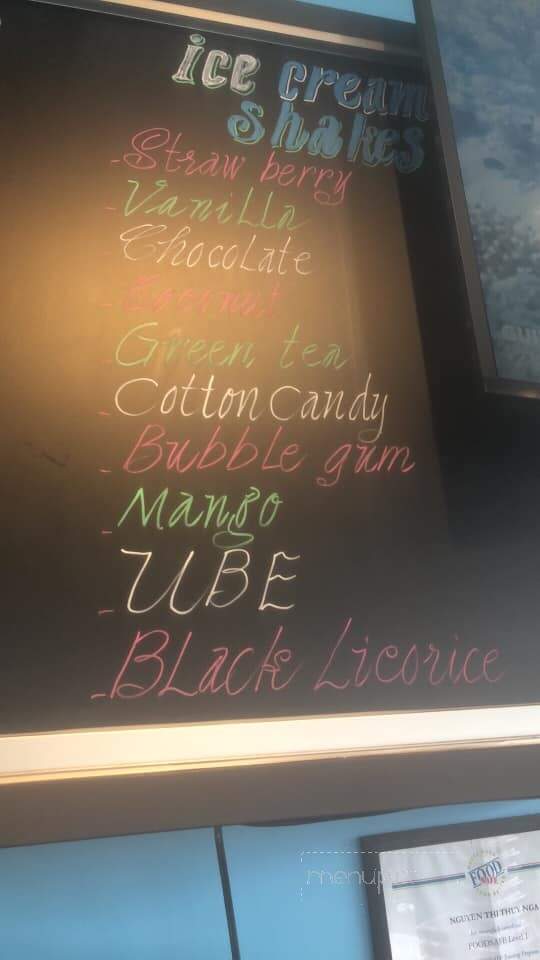 ice cream
shakes
-Straw berry
-Vanilla
Chocolate
-Coconut
Green tea
-Cotton Candy
-Bubble gum
-Mango
-UBE
-Black Licorice
menup
FOOD
NGUYEN THI THUY NGA
FOODSAFE Level 1